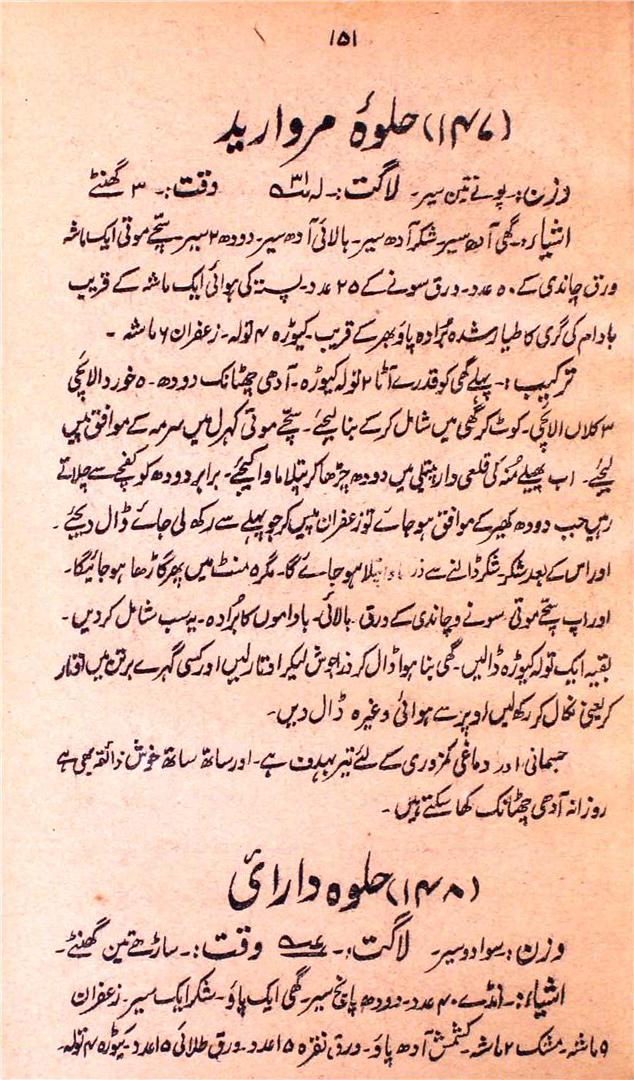 ۱۵۱
(۱۴۷) حلوۂ مروارید
وزن:۔ پونے تین سیر۔ لاگت:۔ وقت:۔ ۳ گھنٹے
اشیاء:۔ گھی آدھ سیر۔ شکر آدھ سیر۔ بالائی آدھ سیر۔ دودھ ۲ سیر۔ سچّے موتی ایک ماشہ
ورق چاندی کے ۵۰ عدد۔ ورق سونے کے ۲۵ عدد۔ پستہ کی ہوائی ایک ماشہ کے قریب
بادام کی گری کا طیار شدہ بُرادہ پاؤ بھر کے قریب۔ کیوڑہ ۴ تولہ۔ زعفران ۶ ماشہ ۔
ترکیب:۔ پہلے گھی کو قدرے آٹا ۲ تولہ کیوڑہ۔ آدھی چھٹانک دودھ۔ ۵ خورد الائچی
۳ کلاں الائچی۔ کوٹ کر گھی میں شامل کر کے بنا لیجئے۔ سچّے موتی کہرل میں سرمہ کے موافق پیس
لیجئے۔ اب پھیلے مُنہ کی قلعی دار پتیلی میں دودھ چڑھا کر پتلا ماوا کیجئے۔ برابر دودھ کو کفچے سے چلاتے
رہیں جب دودھ کھیر کے موافق ہو جائے تو زعفران پیس کر جو پہلے سے رکھ لی جائے ڈال دیجئے۔
اور اس کے بعد شکر۔ شکر ڈالنے سے ذرا ماوا پتلا ہو جائے گا۔ مگر ۵ منٹ میں پھر گاڑھا ہو جائیگا۔
اور اب سچّے موتی۔ سونے و چاندی کے ورق۔ بالائی۔ باداموں کا بُرادہ۔ یہ سب شامل کر دیں۔
بقیہ ایک تولہ کیوڑہ ڈالیں۔ گھی بنا ہوا ڈال کر ذرا جوش لیکر اوتار لیں اور کسی گہرے برتن میں اوتار
کر یعنی نکال کر رکھ لیں اوپر سے ہوائی وغیرہ ڈال دیں۔
جسمانی اور دماغی کمزوری کے لئے تیر بہدف ہے۔ اور ساتھ ساتھ خوش ذائقہ بھی ہے
روزانہ آدھی چھٹانک کھا سکتے ہیں۔
(۱۴۸) حلوہ دارائی
وزن:۔ سوا دو سیر۔ لاگت:۔ وقت:۔ ساڑھے تین گھنٹے۔
اشیاء:۔ انڈے ۴۰ عدد۔ دودھ پانچ سیر۔ گھی ایک پاؤ۔ شکر ایک سیر۔ زعفران
۹ ماشہ۔ مشک ۲ ماشہ۔ کشمش آدھ پاؤ۔ ورق نقرہ ۱۵ عدد۔ ورق طلائی ۱۵ عدد۔ کیوڑہ ۴ تولہ۔